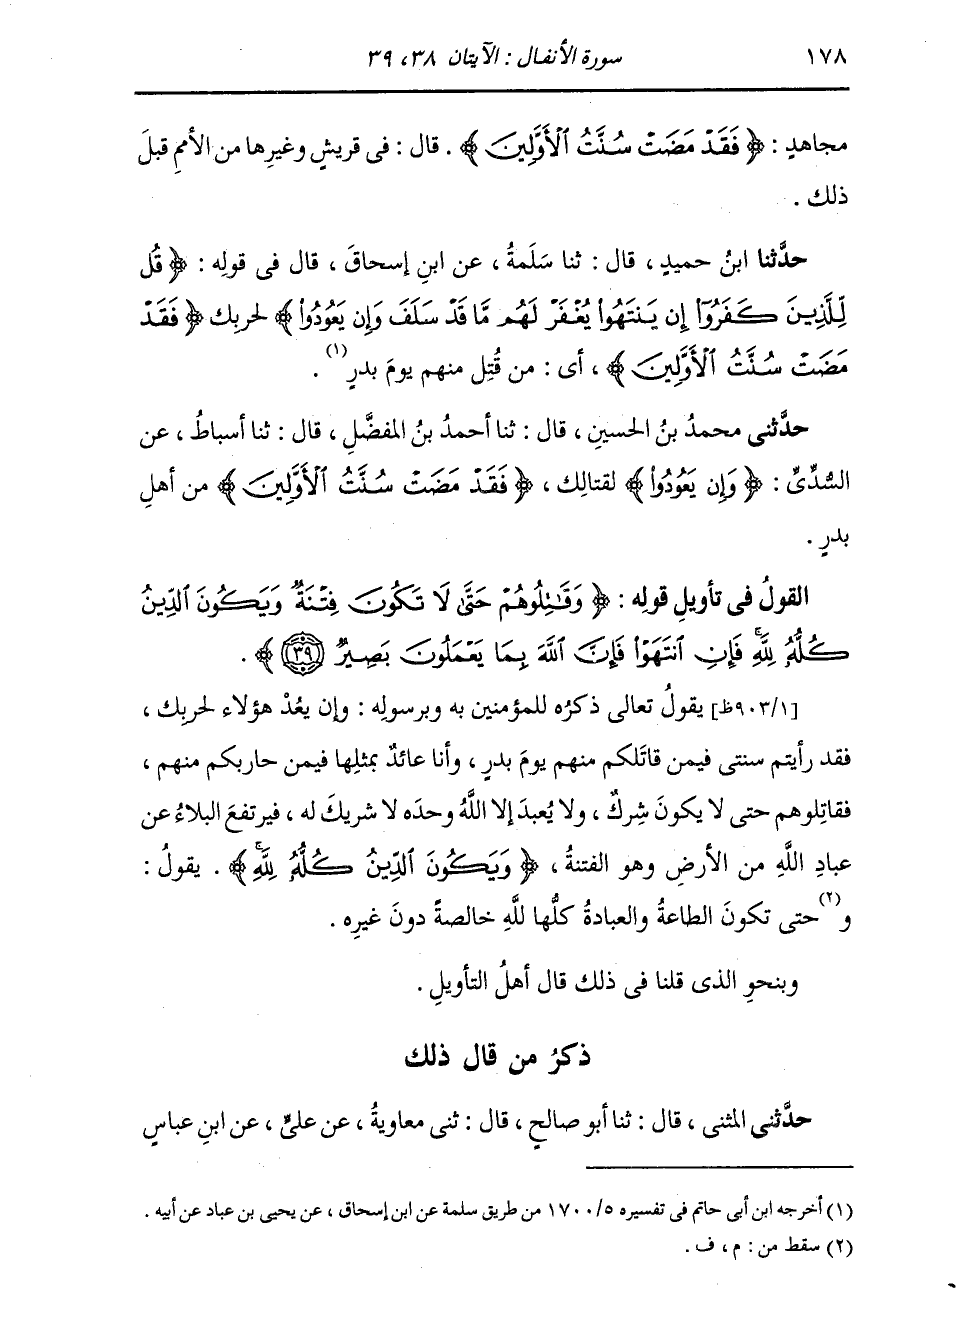 ١٧٨ سورة الأنفال : الآيتان ٣٨، ٣٩
مجاهدٍ : ﴿ فَقَدْ مَضَتْ سُنَّتُ ٱلْأَوَّلِينَ ﴾ . قال : فى قريشٍ وغيرِها من الأممِ قبلَ
ذلك .
حدَّثنا ابنُ حميدٍ ، قال : ثنا سَلَمةُ ، عن ابنِ إسحاقَ ، قال فى قولِه : ﴿ قُل
لِّلَّذِينَ كَفَرُوٓا۟ إِن يَنتَهُوا۟ يُغْفَرْ لَهُم مَّا قَدْ سَلَفَ وَإِن يَعُودُوا۟ ﴾ لحربِك ﴿ فَقَدْ
مَضَتْ سُنَّتُ ٱلْأَوَّلِينَ ﴾ ، أى : من قُتِل منهم يومَ بدرٍ (١) .
حدَّثنى محمدُ بنُ الحسينِ ، قال : ثنا أحمدُ بنُ المفضَّلِ ، قال : ثنا أسباطُ ، عن
السُّدِّىِّ : ﴿ وَإِن يَعُودُوا۟ ﴾ لقتالِك ، ﴿ فَقَدْ مَضَتْ سُنَّتُ ٱلْأَوَّلِينَ ﴾ من أهلِ
بدرٍ .
القولُ فى تأويلِ قوله : ﴿ وَقَـٰتِلُوهُمْ حَتَّىٰ لَا تَكُونَ فِتْنَةٌ وَيَكُونَ ٱلدِّينُ
كُلُّهُۥ لِلَّهِ ۚ فَإِنِ ٱنتَهَوْا۟ فَإِنَّ ٱللَّهَ بِمَا يَعْمَلُونَ بَصِيرٌ ٣٩ ﴾ .
[٩٠٣/١ظ] يقولُ تعالى ذكرُه للمؤمنين به وبرسولِه : وإن يعُدْ هؤلاء لحربِك ،
فقد رأيتم سنتى فيمن قاتَلكم منهم يومَ بدرٍ ، وأنا عائدٌ بمثلِها فيمن حاربكم منهم ،
فقاتِلوهم حتى لا يكونَ شِركٌ ، ولا يُعبدَ إلا اللَّهُ وحدَه لا شريكَ له ، فيرتفعَ البلاءُ عن
عبادِ اللَّهِ من الأرضِ وهو الفتنةُ ، ﴿ وَيَكُونَ ٱلدِّينُ كُلُّهُۥ لِلَّهِ ۚ ﴾ . يقولُ :
و(٢) حتى تكونَ الطاعةُ والعبادةُ كلُّها للَّهِ خالصةً دونَ غيرِه .
وبنحوِ الذى قلنا فى ذلك قال أهلُ التأويلِ .
ذكرُ من قال ذلك
حدَّثنى المثنى ، قال : ثنا أبو صالحٍ ، قال : ثنى معاويةُ ، عن علىٍّ ، عن ابنِ عباسٍ
(١) أخرجه ابن أبى حاتم فى تفسيره ١٧٠٠/٥ من طريق سلمة عن ابن إسحاق ، عن يحيى بن عباد عن أبيه .
(٢) سقط من : م ، ف .